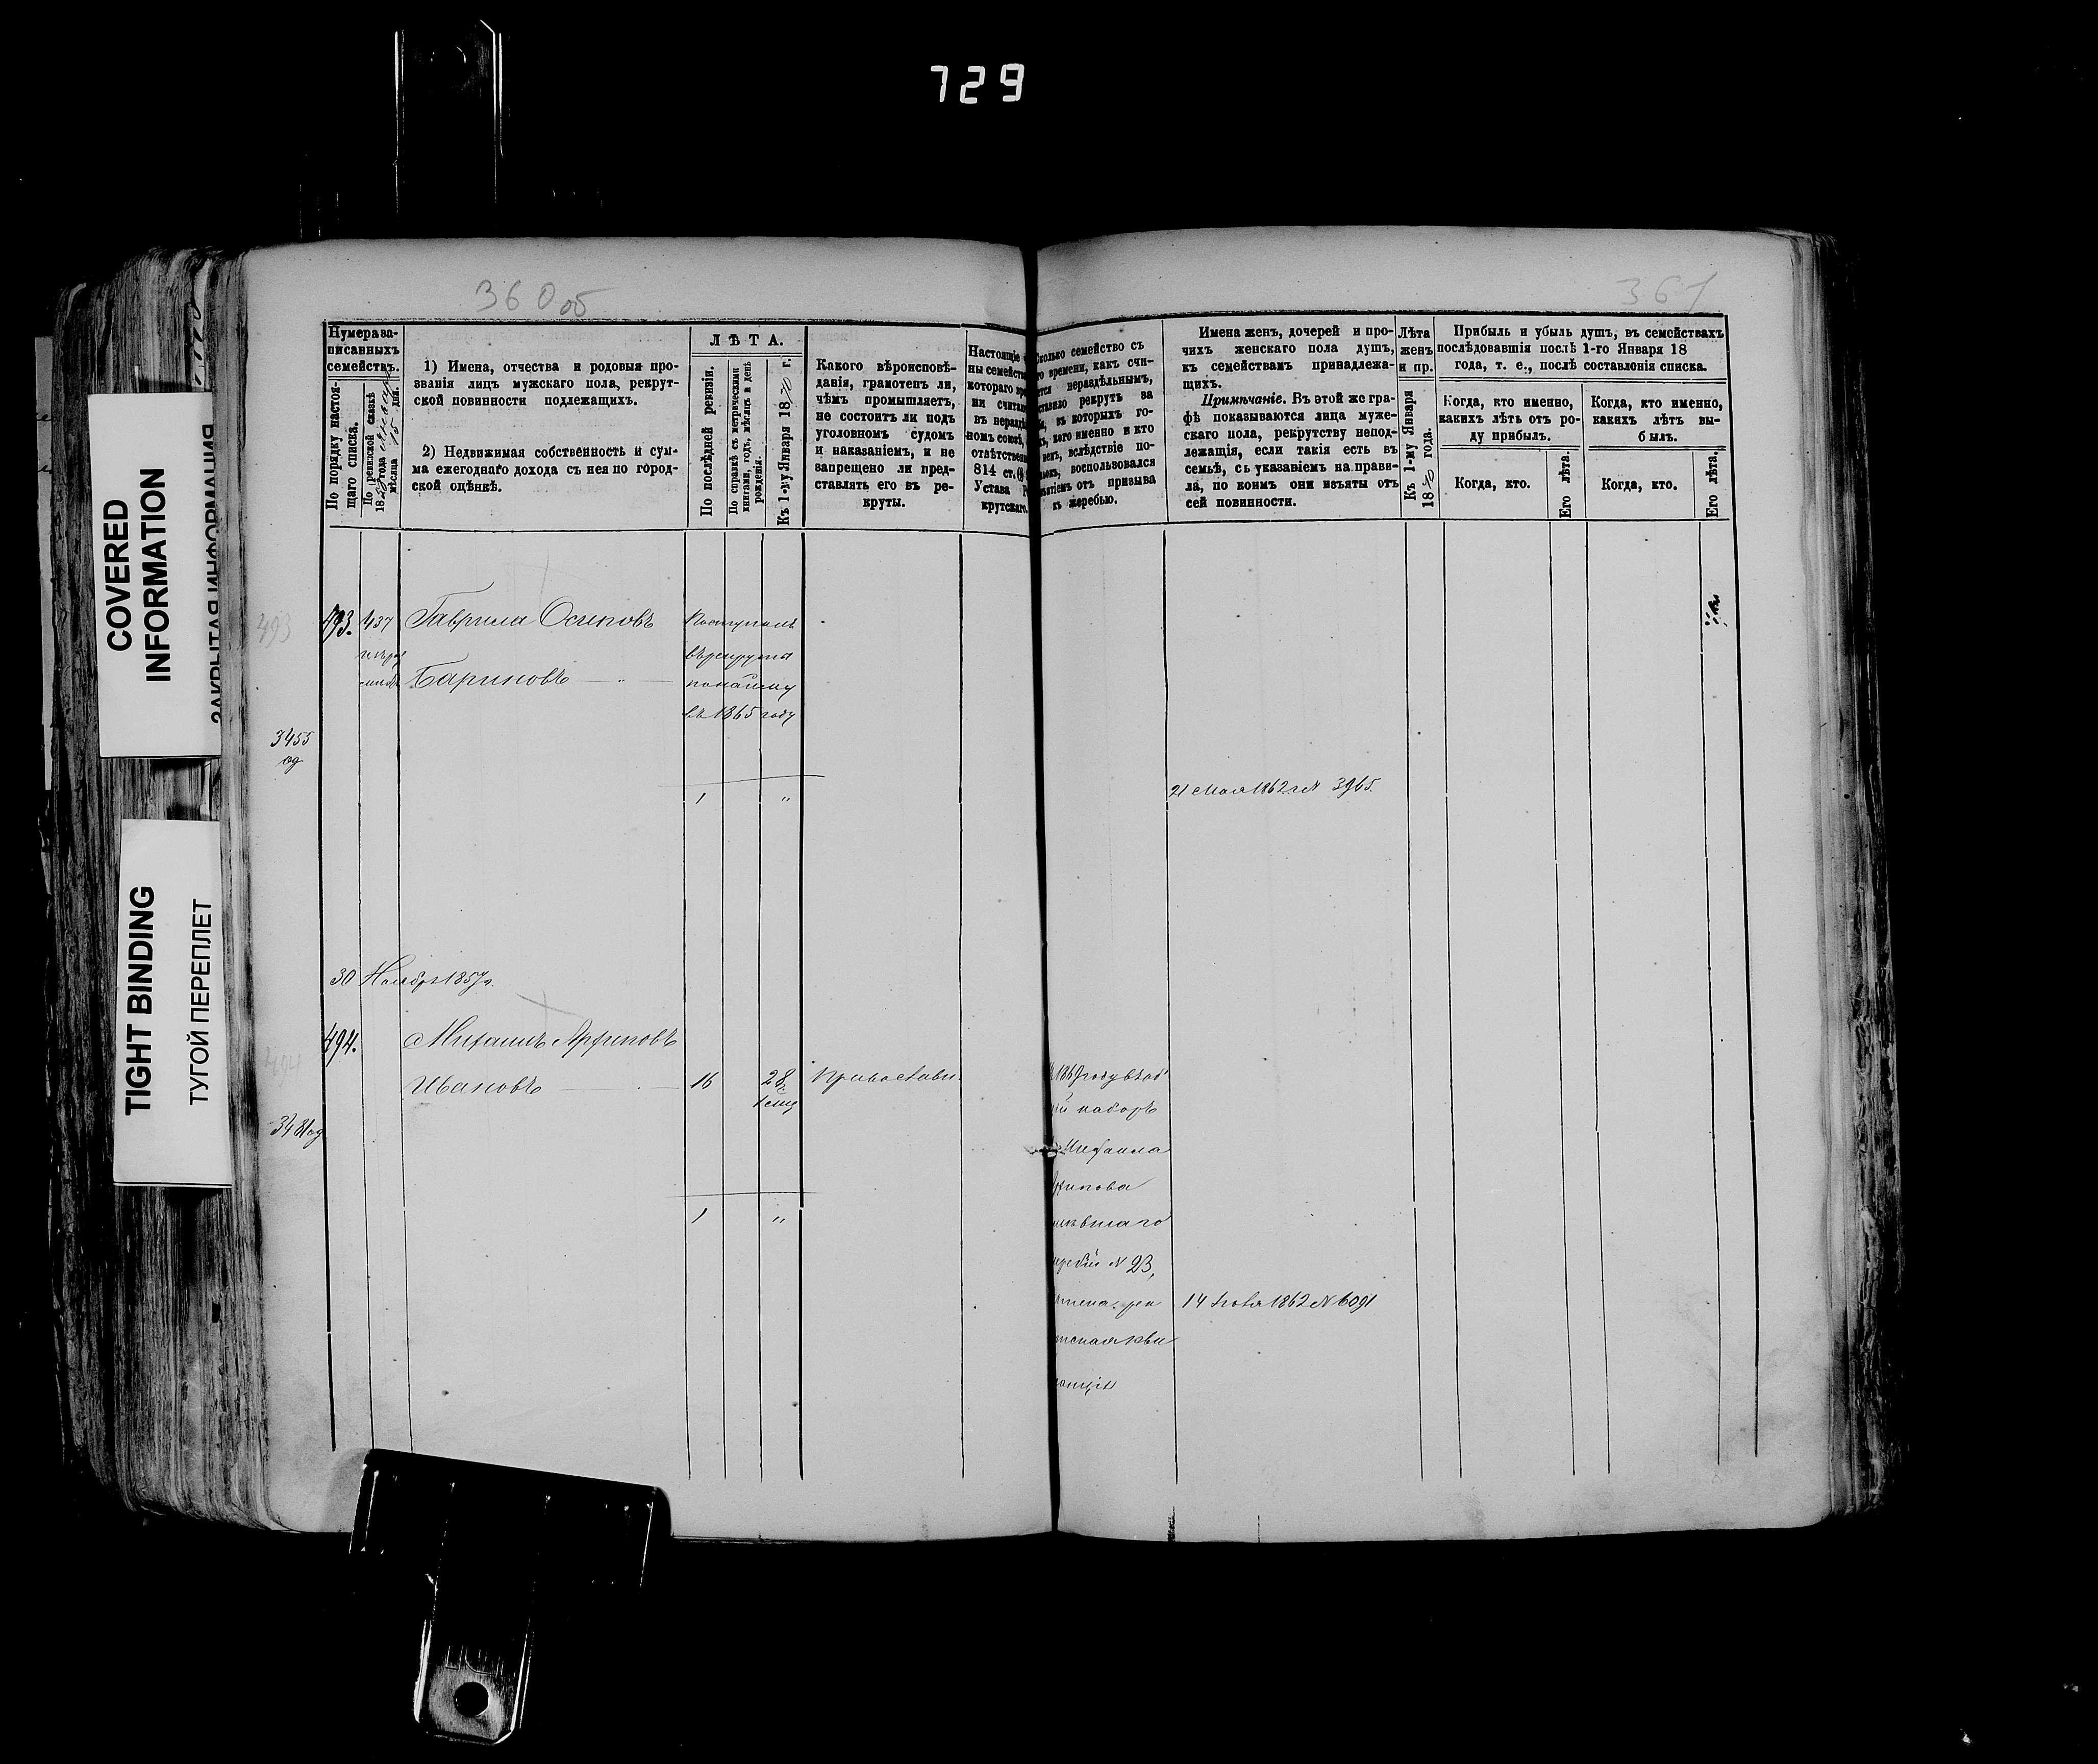 729
360 об
361
COVERED
INFORMATION
ЗАКРЫТАЯ ИНФОРМАЦИЯ
TIGHT BINDING
ТУГОЙ ПЕРЕПЛЕТ
Нумера за-
писанныхъ
семействъ.
По порядку настоя-
щаго списка.
По ревизской сказкѣ
18 года
мѣсяца 15 дня.
1) Имена, отчества и родовыя про-
званія лицъ мужскаго пола, рекрут-
ской повинности подлежащихъ.
2) Недвижимая собственность и сум-
ма ежегоднаго дохода съ нея по город-
ской оцѣнкѣ.
ЛѢТА.
По послѣдней ревизіи.
По справкѣ съ метрическими
книгами, годъ, мѣсяцъ и день
рожденія.
Къ 1-му Января 1870 г.
Какого вѣроисповѣ-
данія, грамотенъ ли,
чѣмъ промышляетъ,
не состоитъ ли подъ
уголовномъ судомъ
и наказаніемъ, и не
запрещено ли пред-
ставлять его въ ре-
круты.
Настоящіе
ны семейств
котораго
ни счита
въ неразд
номъ союзѣ,
отвѣтствен
814 ст.
Устава Р
крутскаго.
Сколько семейство съ
го времени, какъ счи-
ется нераздѣльнымъ,
ставило рекрутъ за
въ которыхъ го-
кого именно и кто
вслѣдствіе по-
воспользовался
ятіемъ отъ призыва
къ жеребью.
Имена женъ, дочерей и про-
чихъ женскаго пола душъ,
къ семействамъ принадлежа-
щихъ.
Примѣчаніе. Въ этой же гра-
фѣ показываются лица муже-
скаго пола, рекрутству непод-
лежащія, если такія есть въ
семьѣ, съ указаніемъ на прави-
ла, по коимъ они изъяты отъ
сей повинности.
Лѣта
женъ
и пр.
Къ 1-му Января
1870 года.
Прибыль и убыль душъ, въ семействахъ
послѣдовавшія послѣ 1-го Января 18
года, т. е., послѣ составленія списка.
Когда, кто именно,
какихъ лѣтъ отъ ро-
ду прибылъ.
Когда, кто.
Его лѣта.
Когда, кто именно,
какихъ лѣтъ вы-
былъ.
Когда, кто.
Его лѣта.
493
493. 437 Гаврила Осиповъ Поступилъ
въ рекруты
Бариновъ по найму
въ 1865 году
3455
од
1 "
21 Мая 1862 г. № 3965.
30 Ноября 1857 г.
494
494. Михаилъ Архиповъ
Ивановъ 16 28 Православн.
1 мѣс
3481 од
1 "
1869 году въ об
ій наборъ
Михаила
хипова
мѣвшаго
жребій № 23,
рек
14 1862 № 6091
тская кви
танція